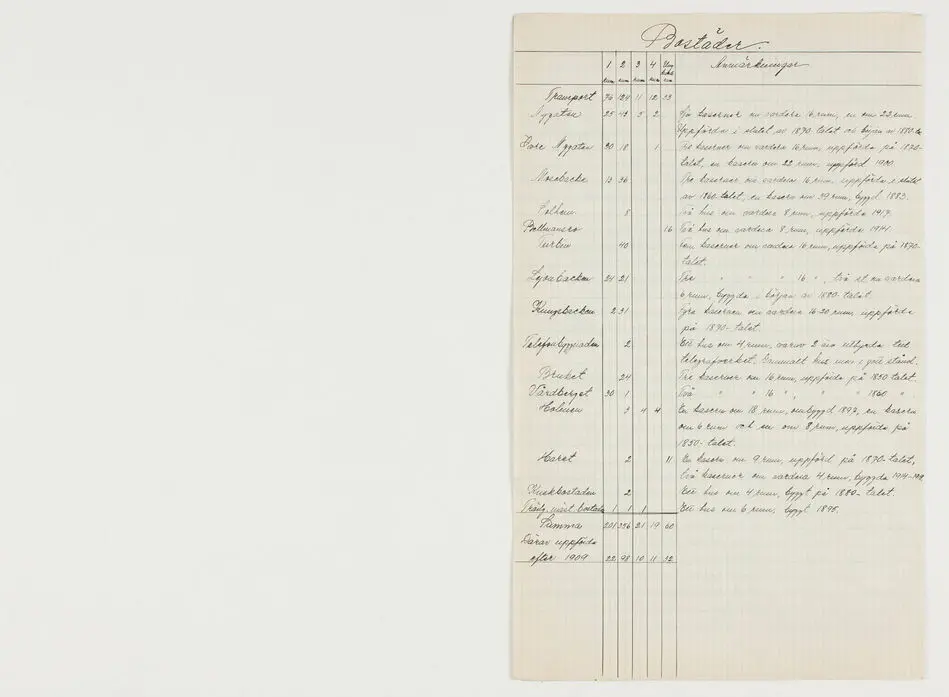 Bostäder.
1 rum 2 rum 3 rum 4 rum rum Anmärkningar
Transport 76 124 11 12 33
Nygatan 25 42 5 2 bo kaserner om vardera 16 rum, en om 22 rum
Uppförda i slutet av 1870-talet av början av 1880-ta
Norr Nygatan 30 18 1 Tre kaserner om vardera 16 rum, uppförda på 1870-
talet, en kasern om 22 rum, uppförd 1900.
Mosebacke 13 36 Tre kaserner om vardera 16 rum, uppförda i slutet
av 1860-talet, en kasern om 39 rum, byggd 1883.
Solhem 8 Två hus om vardera 8 rum, uppförda 1917.
Bellmansro 16 Två hus om vardera 8 rum, uppförda 1914.
Turbin 40 Fem kaserner om vardera 16 rum, uppförda på 1870-
talet.
Lyonbacken 24 21 Tre " " " 16 ", två st om vardera
6 rum, byggda i början av 1880-talet.
Kungsbacken 2 31 Fyra kaserner om vardera 16-20 rum, uppförda
på 1870-talet.
Telefonbyggnaden 2 Ett hus om 4 rum, varav 2 äro uthyrda till
telegrafverket. Gammalt hus men i gott stånd.
Bruket 24 Tre kaserner om 16 rum, uppförda på 1850-talet.
Vårdberget 30 1 Två " " 16 ", " " 1860 ".
Holmen 3 4 4 En kasern om 18 rum, ombyggd 1897, en kasern
om 6 rum och en om 8 rum, uppförda på
1850-talet.
Haret 2 11 En kasern om 9 rum, uppförd på 1870-talet,
två kaserner om vardera 4 rum, byggda 1914-191
Kuskbostaden 2 Ett hus om 4 rum, byggt på 1880-talet.
Trädg. mäst. bostad 1 1 1 Ett hus om 6 rum, byggt 1895.
Summa 201 356 21 19 60
Därav uppförda
efter 1909 22 98 10 11 32